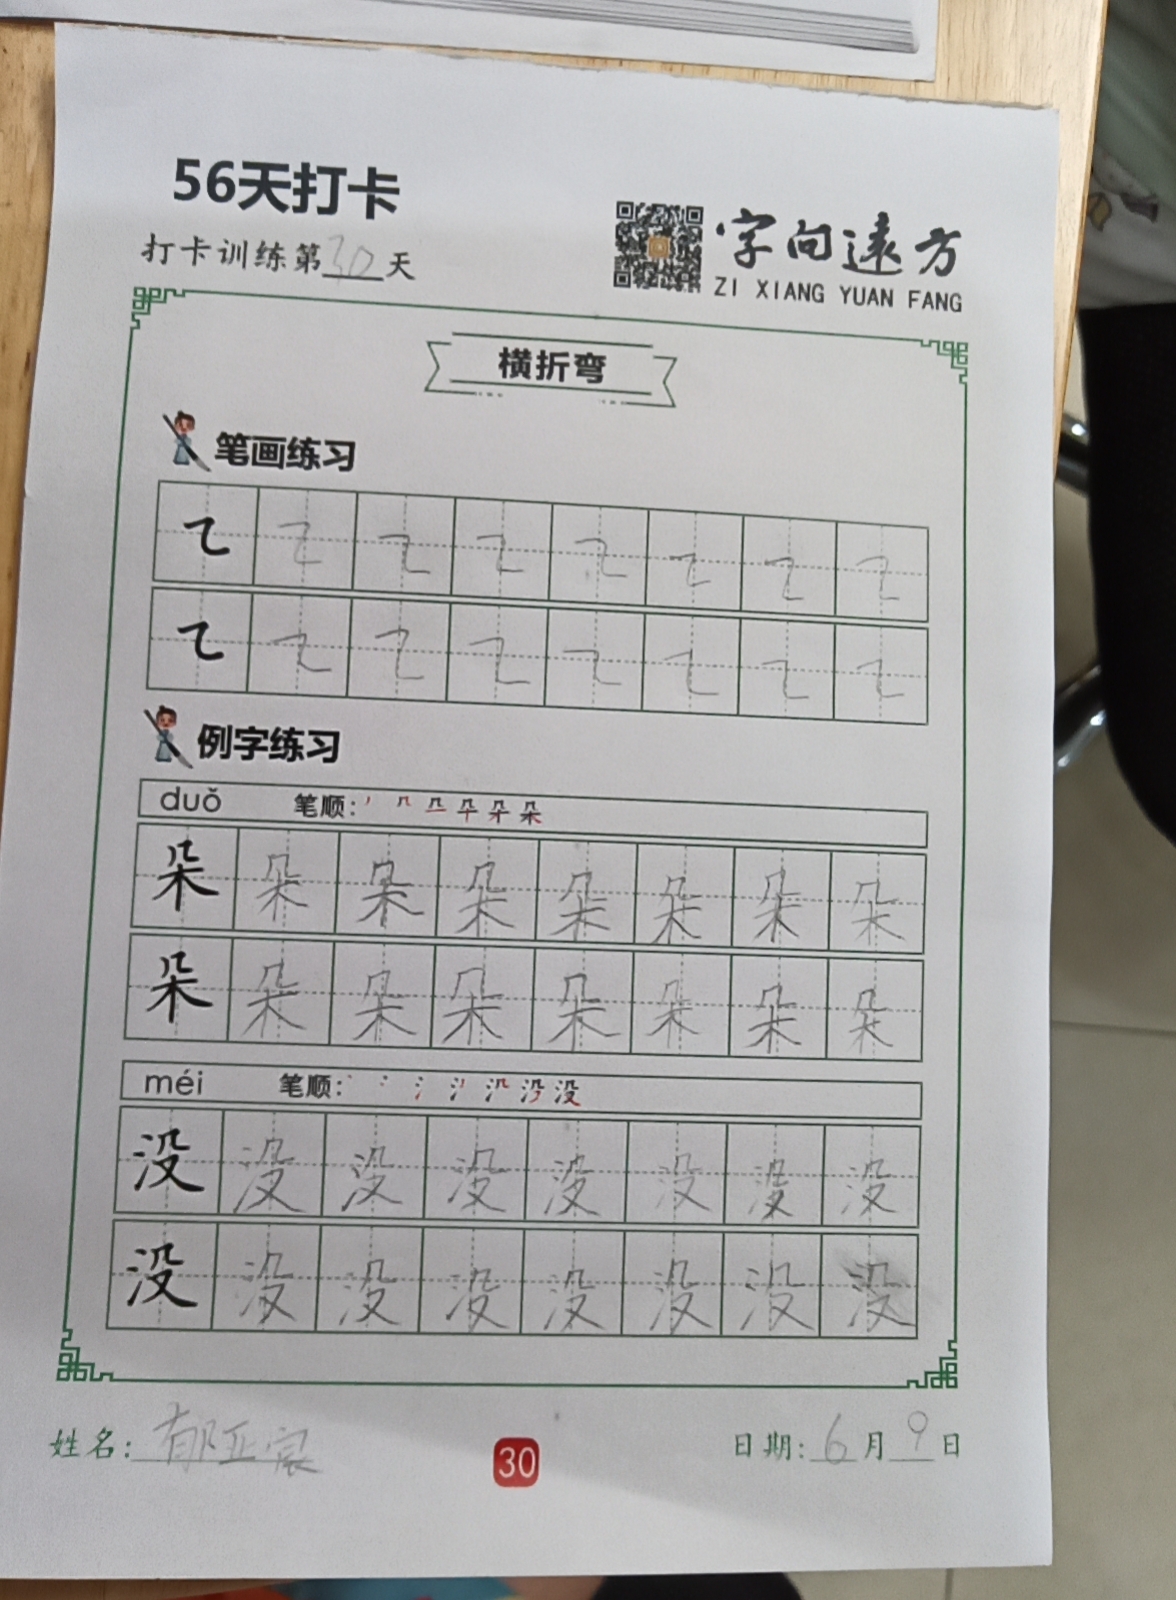 56天打卡
打卡训练第30天
字向远方
ZI XIANG YUAN FANG
横折弯
笔画练习
㇍ ㇍ ㇍ ㇍ ㇍ ㇍ ㇍ ㇍
㇍ ㇍ ㇍ ㇍ ㇍ ㇍ ㇍ ㇍
例字练习
duǒ 笔顺:
朵 朵 朵 朵 朵 朵 朵 朵
朵 朵 朵 朵 朵 朵 朵 朵
méi 笔顺:
没 没 没 没 没 没 没 没
没 没 没 没 没 没 没 没
姓名: 郁亚宸
30
日期: 6月9日